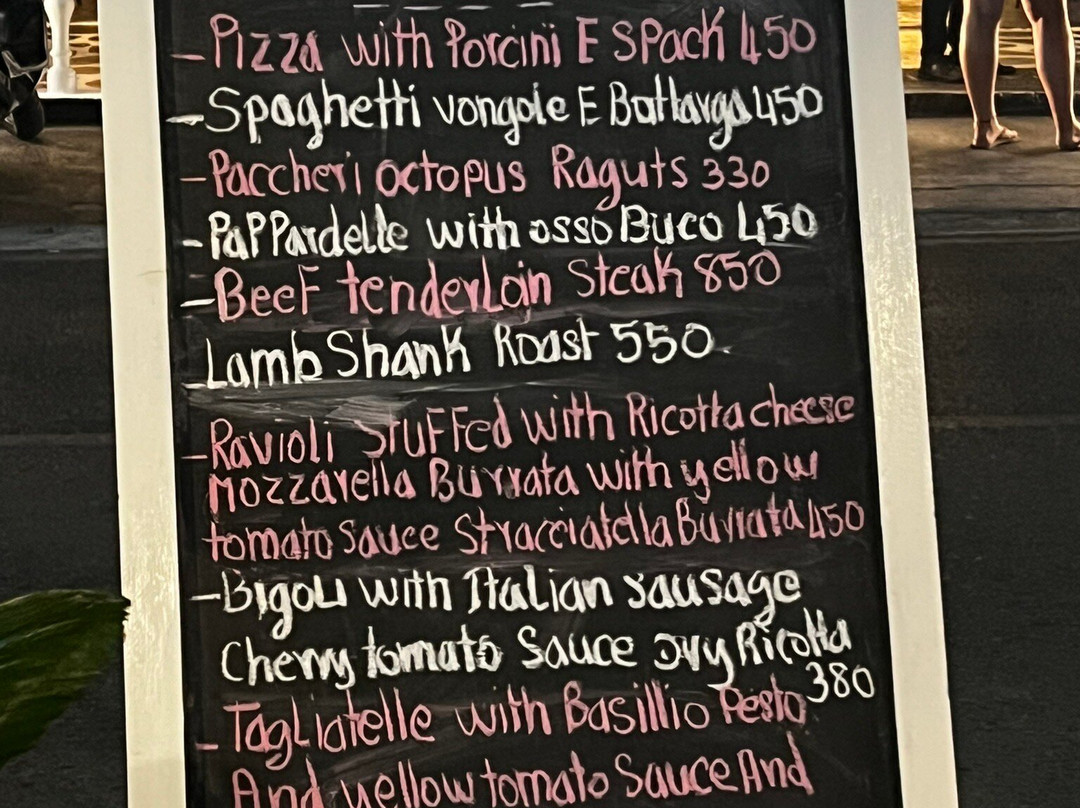 -Pizza with Porcini E SPack 450
-Spaghetti vongole E Bottarga 450
-Paccheri octopus Raguts 330
-PaPPardelle with osso Buco 450
-Beef tenderloin Steak 850
-Lamb Shank Roast 550.
-Ravioli Stuffed with Ricotta cheese
Mozzarella Burrata with yellow
tomato Sauce Stracciatella Burrata 450
-Bigoli with Italian sausage
Cherry tomato Sauce Dry Ricotta
380
-Tagliatelle with Basillio Pesto
And yellow tomato Sauce And